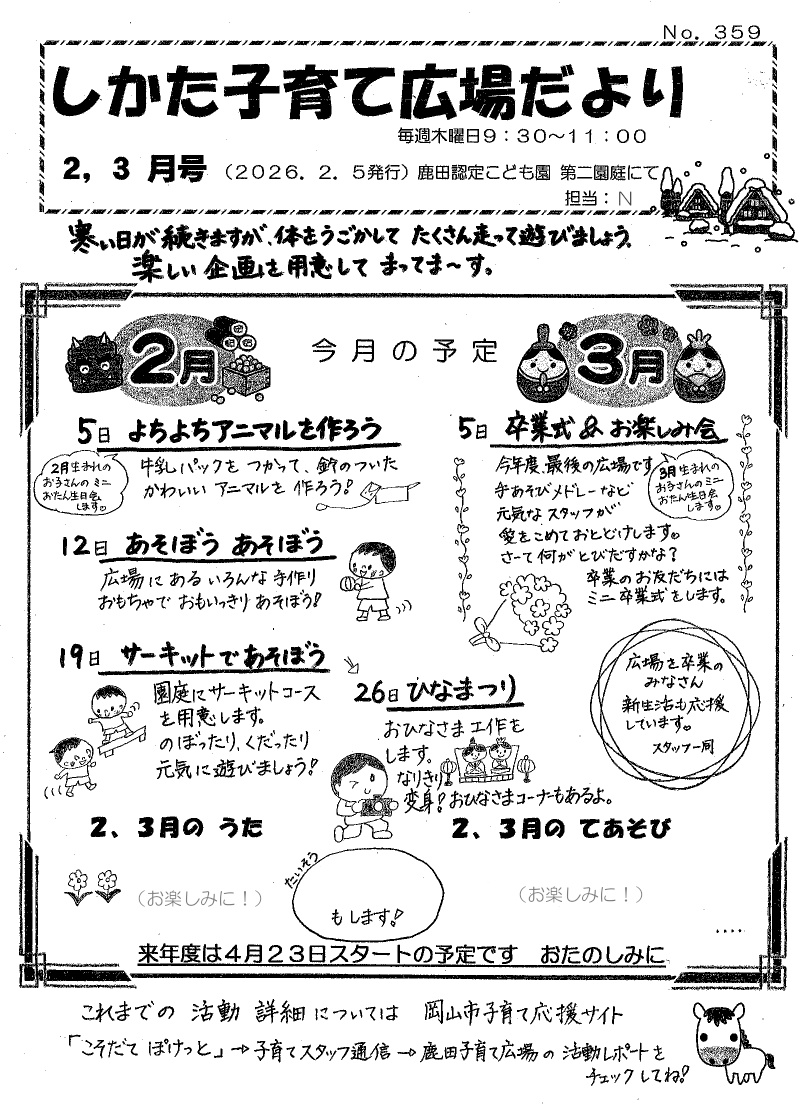 No. 359
しかた子育て広場だより
毎週木曜日9：30～11：00
2，3 月号 （2026．2．5発行）鹿田認定こども園 第二園庭にて
担当：N
寒い日が続きますが、体をうごかして たくさん走って遊びましょう。
楽しい企画を用意して まってま～す。
2月
今月の予定
3月
5日 よちよちアニマルを作ろう
2月生まれの
お子さんのミニ
おたん生日会
します
牛乳パックを つかって、鈴のついた
かわいい アニマルを 作ろう！
12日 あそぼう あそぼう
広場に ある いろんな 手作り
おもちゃで おもいっきり あそぼう！
19日 サーキットであそぼう
園庭にサーキットコース
を用意します。
のぼったり、くだったり
元気に遊びましょう！
26日 ひなまつり
おひなさま工作を
します。
なりきり
変身！おひなさまコーナーもあるよ。
5日 卒業式 & お楽しみ会
今年度、最後の広場です
手あそびメドレーなど
元気な スタッフが
愛をこめておとどけします。
さーて 何がとびだすかな？
3月生まれの
お子さんのミニ
おたん生日会
します
卒業のお友だちには
ミニ卒業式をします。
広場を卒業の
みなさん
新生活も応援
しています。
スタッフ一同
2、3月の うた
（お楽しみに！）
たいそう
もします！
2、3月の てあそび
（お楽しみに！）
来年度は4月23日スタートの予定です おたのしみに
これまでの 活動 詳細については 岡山市子育て応援サイト
「こそだて ぽけっと」→子育てスタッフ通信→鹿田子育て広場の 活動レポートを
チェックしてね！